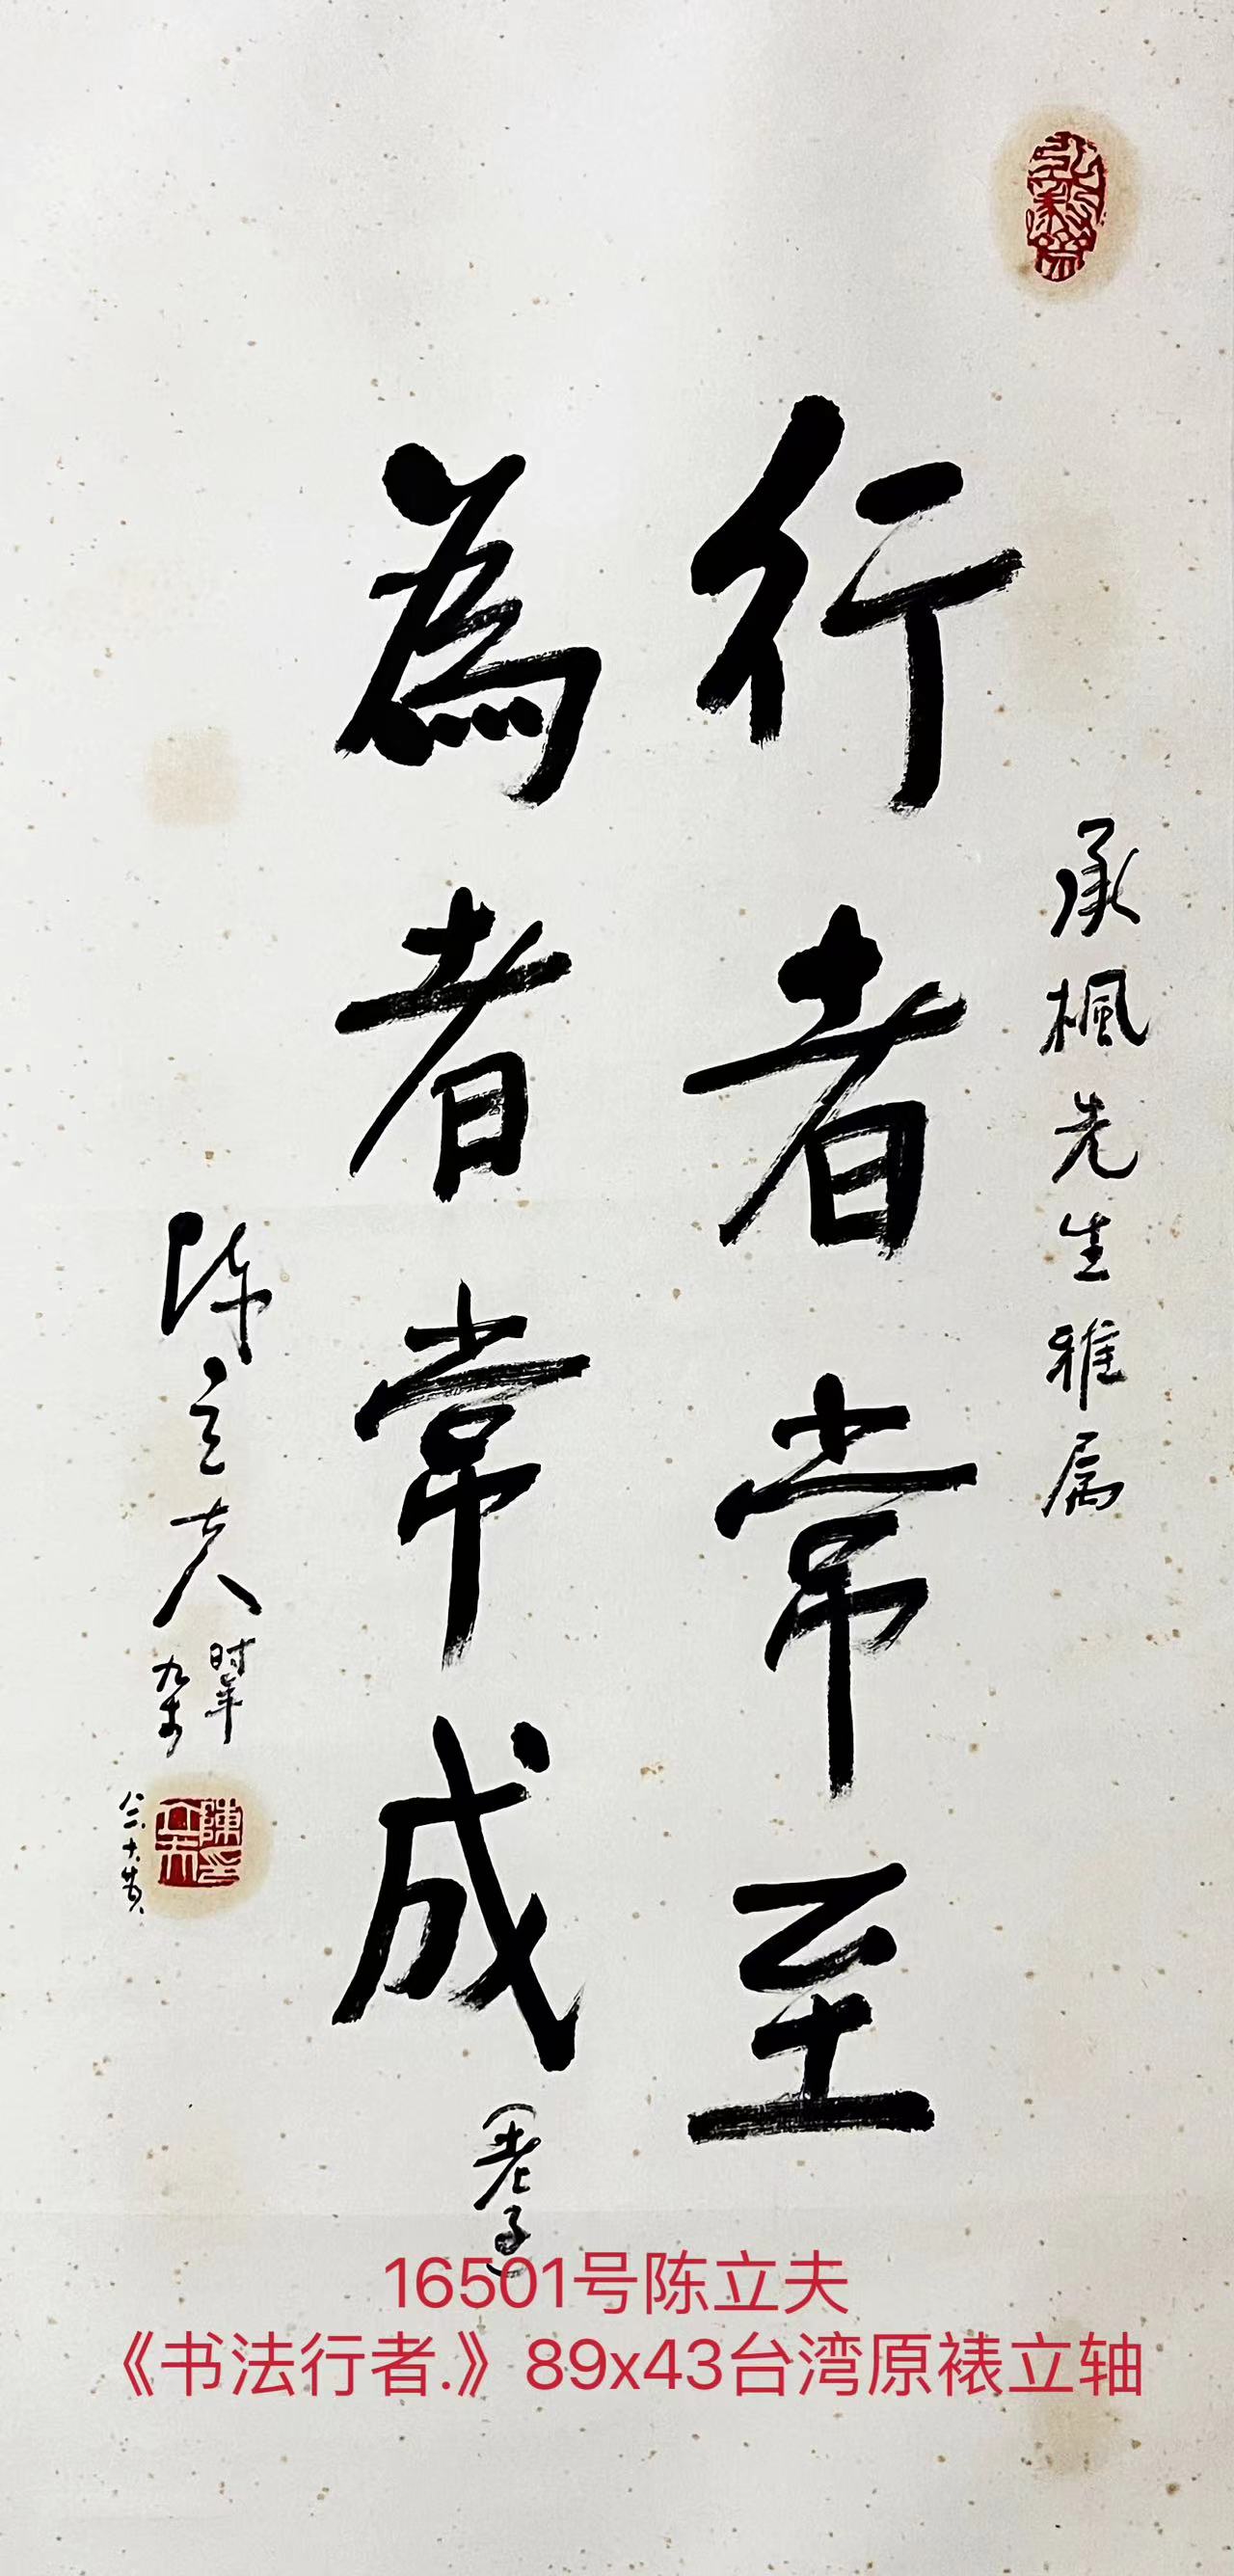 承楓先生雅属
行者常至
為者常成
(老子)
陈立夫
时年
九十
陳立夫印
16501号陈立夫
《书法行者.》89x43台湾原裱立轴